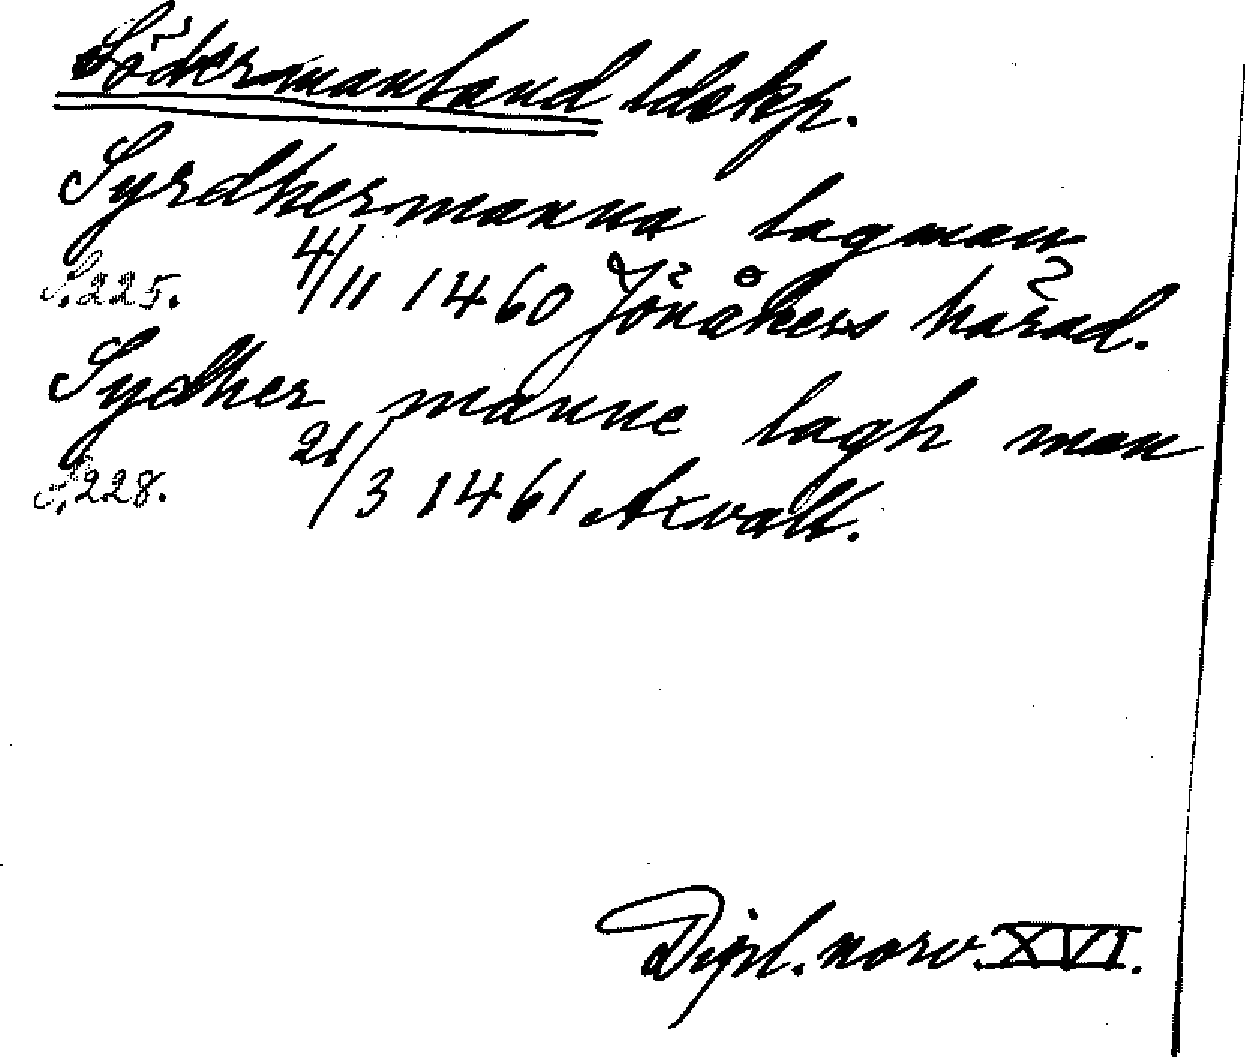 Södermanland ldskp.
Syrdhermanna lagman
S. 225. 4/11 1460 Jönåkers härad.
Sydher manne lagh man
S. 228. 21/3 1461 Axvall.
Dipl. norv. XVI.